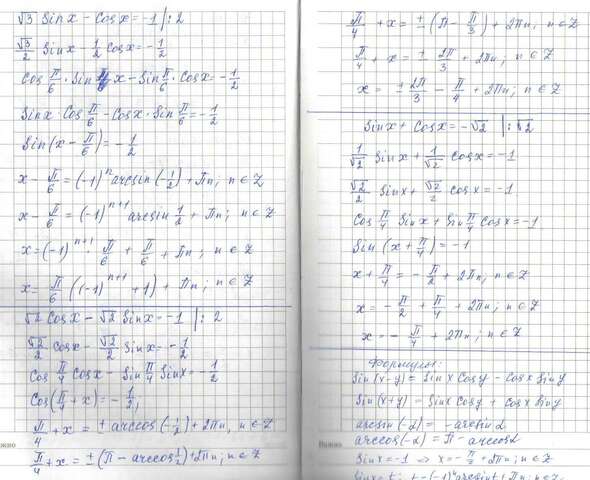 √3 Sinx - Cosx = -1 |: 2
√3/2 Sinx - 1/2 Cosx = -1/2
Cos π/6 · Sin x - Sin π/6 · Cosx = -1/2
Sinx · Cos π/6 - Cosx · Sin π/6 = -1/2
Sin(x - π/6) = -1/2
x - π/6 = (-1)^n arcsin(-1/2) + πn, n ∈ Z
x - π/6 = (-1)^(n+1) arcsin 1/2 + πn; n ∈ Z
x = (-1)^(n+1) · π/6 + π/6 + πn; n ∈ Z
x = π/6 ((-1)^(n+1) + 1) + πn; n ∈ Z
√2 Cosx - √2 Sinx = -1 |: 2
√2/2 Cosx - √2/2 Sinx = -1/2
Cos π/4 Cosx - Sin π/4 Sinx = -1/2
Cos(π/4 + x) = -1/2;
π/4 + x = ± arccos(-1/2) + 2πn, n ∈ Z
π/4 + x = ± (π - arccos 1/2) + 2πn; n ∈ Z
π/4 + x = ± (π - π/3) + 2πn, n ∈ Z
π/4 + x = ± 2π/3 + 2πn; n ∈ Z
x = ± 2π/3 - π/4 + 2πn; n ∈ Z
Sinx + Cosx = -√2 |: √2
1/√2 Sinx + 1/√2 Cosx = -1
√2/2 Sinx + √2/2 Cosx = -1
Cos π/4 Sinx + Sin π/4 Cosx = -1
Sin (x + π/4) = -1
x + π/4 = - π/2 + 2πn, n ∈ Z
x = - π/2 + π/4 + 2πn, n ∈ Z
x = - π/4 + 2πn; n ∈ Z
Формулы:
Sin(x-y) = Sinx Cosy - Cosx Siny
Sin(x+y) = Sinx Cosy + Cosx Siny
arcsin(-α) = -arcsin α
arccos(-α) = π - arccos α
Sinx = -1 ⇒ x = - π/2 + 2πn; n ∈ Z